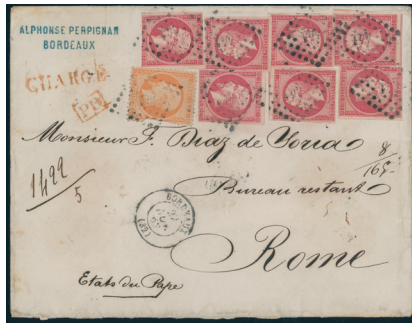 ALPHONSE PERPIGNAN
BORDEAUX
CHARGÉ
PD
Monsieur F. Diaz de Soria
8/165
1422/5
Bureau restant
BORDEAUX
(32)
Rome
Etats du Pape